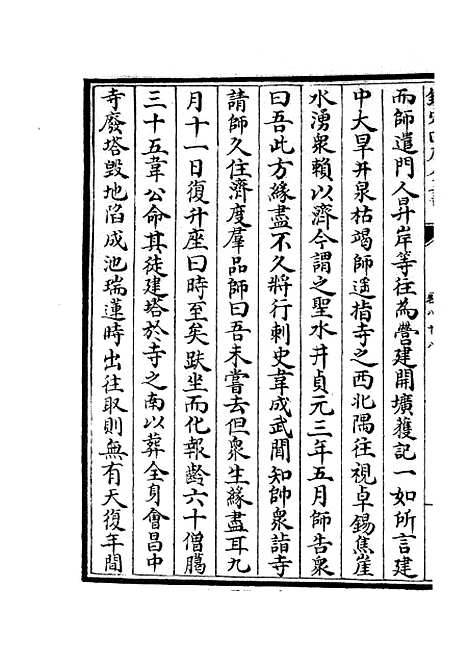 而師遣門人昇岸等往為營建開壙獲記一如所言建
中大旱井泉枯竭師遥指寺之西北隅往視卓錫焦崖
水湧衆賴以濟今謂之聖水井貞元三年五月師告衆
曰吾此方緣盡不久將行刺史韋成武聞知帥衆詣寺
請師久住濟度羣品師曰吾未嘗去但衆生緣盡耳九
月十一日復升座曰時至矣趺坐而化報齡六十僧臈
三十五韋公命其徒建塔於寺之南以葬全身會昌中
寺廢塔毁地陷成池瑞蓮時出往取則無有天復年間